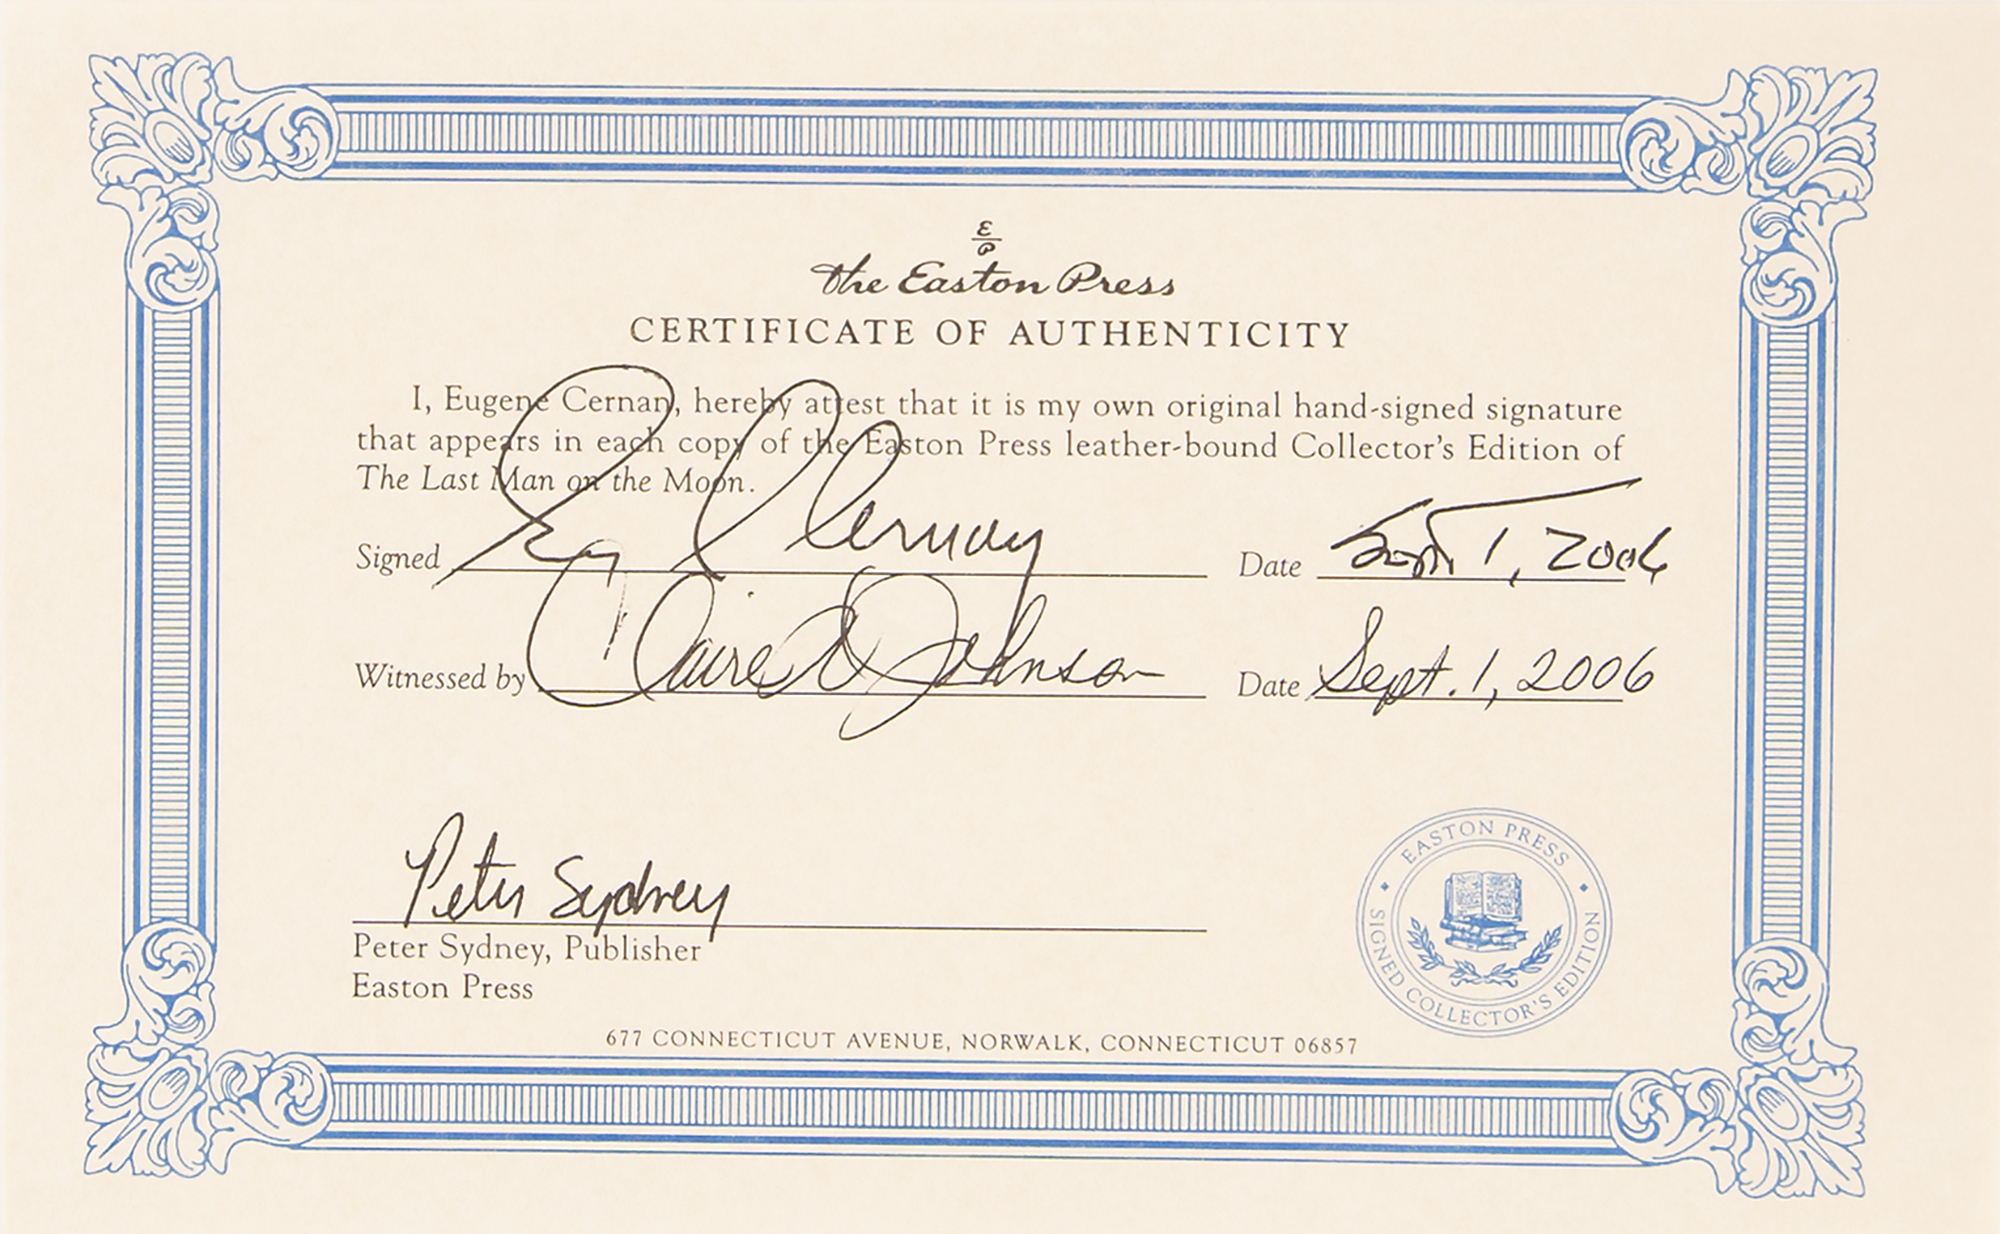 E
P
the Easton Press
CERTIFICATE OF AUTHENTICITY
I, Eugene Cernan, hereby attest that it is my own original hand-signed signature
that appears in each copy of the Easton Press leather-bound Collector's Edition of
The Last Man on the Moon.
Signed Cernan Date Sept. 1, 2006
Witnessed by Claire A Johnson Date Sept. 1, 2006
Peter Sydney
Peter Sydney, Publisher
Easton Press
EASTON PRESS
SIGNED COLLECTOR'S EDITION
677 CONNECTICUT AVENUE, NORWALK, CONNECTICUT 06857